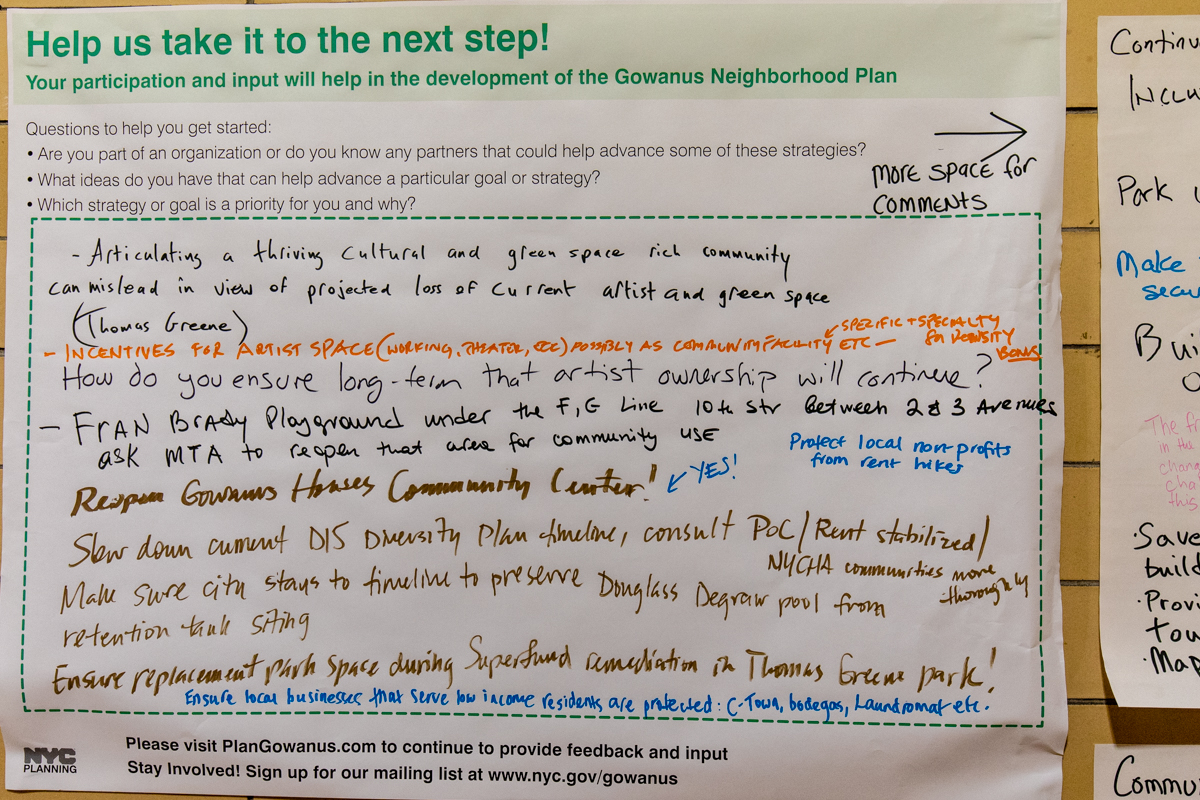 Help us take it to the next step!
Your participation and input will help in the development of the Gowanus Neighborhood Plan
Questions to help you get started:
• Are you part of an organization or do you know any partners that could help advance some of these strategies?
• What ideas do you have that can help advance a particular goal or strategy?
• Which strategy or goal is a priority for you and why?
MORE SPACE for
COMMENTS
- Articulating a thriving cultural and green space rich community
can mislead in view of projected loss of current artist and green space
(Thomas Greene)
- INCENTIVES FOR ARTIST SPACE (WORKING, THEATER, ETC) POSSIBLY AS COMMUNITY FACILITY ETC -
SPECIFIC + SPECIALTY
for DENSITY
BONUS
How do you ensure long-term that artist ownership will continue?
- FrAN Brady Playground under the F,G Line 10th Str Between 2 & 3 Avenues
ask MTA to reopen that area for community use
Protect local non-profits
from rent hikes
Reopen Gowanus Houses Community Center!
YES!
Slow down current D15 Diversity Plan timeline, consult PoC/Rent stabilized/
NYCHA communities more
thoroughly
Make sure city stays to timeline to preserve Douglass Degraw pool from
retention tank siting
Ensure replacement park space during Superfund remediation in Thomas Greene park!
Ensure local businesses that serve low income residents are protected: C-Town, bodegas, Laundromat etc.
NYC
PLANNING
Please visit PlanGowanus.com to continue to provide feedback and input
Stay Involved! Sign up for our mailing list at www.nyc.gov/gowanus
Continu
Inclu
Park
Make
secu
Bui
The fr
in the
chang
cha
this
·Save
build
·Provi
tow
·Map
Commu